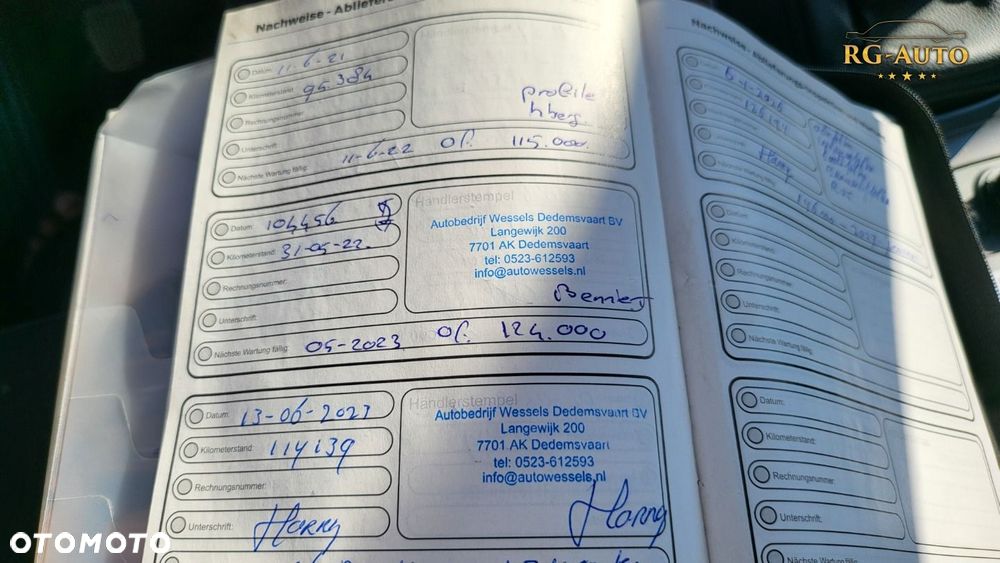 Nachweise - Abliefer
Datum: 11-6-21
Kilometerstand: 95.384
Rechnungsnummer:
Unterschrift:
profile
hberg
Nächste Wartung fällig: 11-6-22 Of. 115.000
Datum: 104456
Kilometerstand: 31-05-22.
Rechnungsnummer:
Unterschrift:
Händlerstempel
Autobedrijf Wessels Dedemsvaart BV
Langewijk 200
7701 AK Dedemsvaart
tel: 0523-612593
info@autowessels.nl
Nächste Wartung fällig: 05-2023 Of. 124.000
Datum: 13-06-2023
Kilometerstand: 114139
Rechnungsnummer:
Unterschrift: Harry
Händlerstempel
Autobedrijf Wessels Dedemsvaart BV
Langewijk 200
7701 AK Dedemsvaart
tel: 0523-612593
info@autowessels.nl
Harry
Nachweise -
Harry
Datum:
Kilometerstand:
Rechnungsnummer:
Unterschrift:
Nächste Wartung fällig:
Datum:
Kilometerstand:
Rechnungsnummer:
Unterschrift:
Nächste Wartung fällig:
RG-AUTO
OTOMOTO